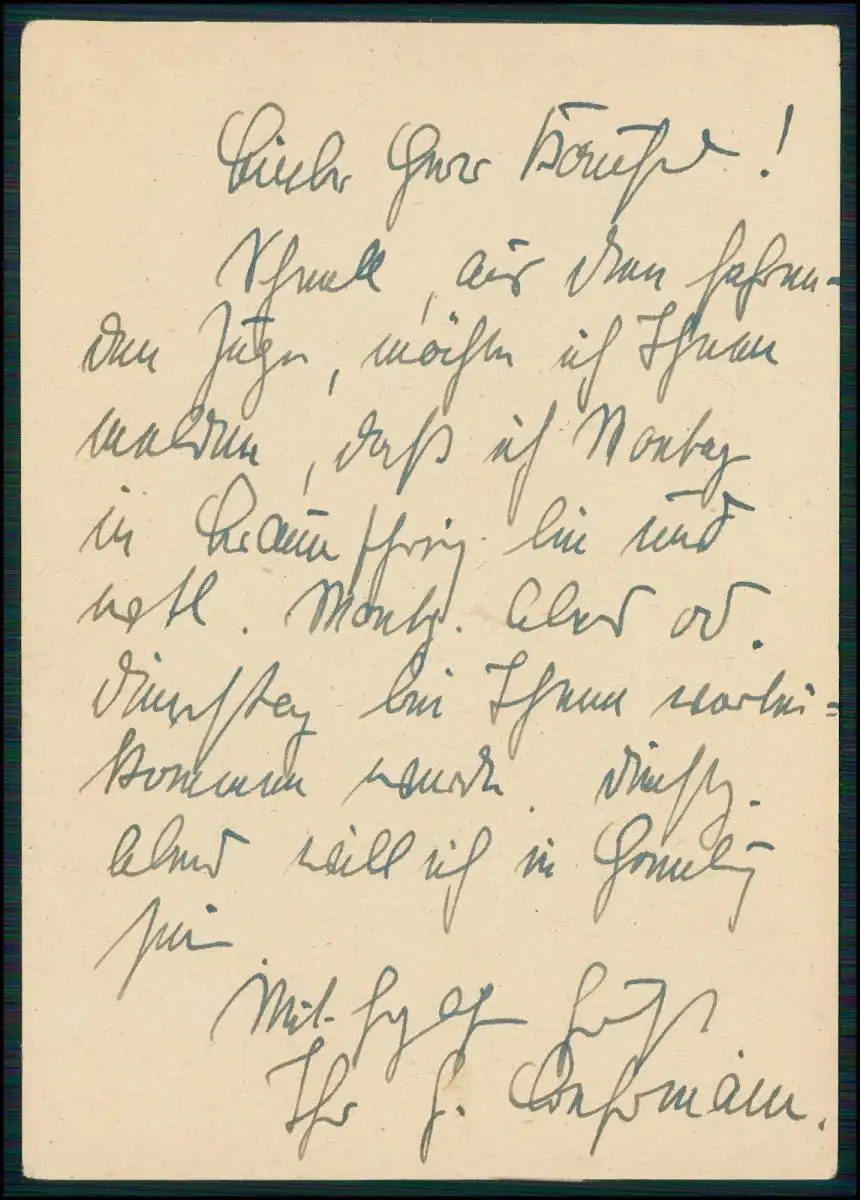 Lieber Herr
Schnell, aus dem fahren-
den Zuge, möchte ich Ihnen
melden, daß ich Montag
in Braunschweig bin und
evtl. Montg. Abend od.
Dienstag bei Ihnen vorbei-
kommen werde. Dienstg.
Abend will ich in
sein
Mit herzlich Gruß
Ihr H.